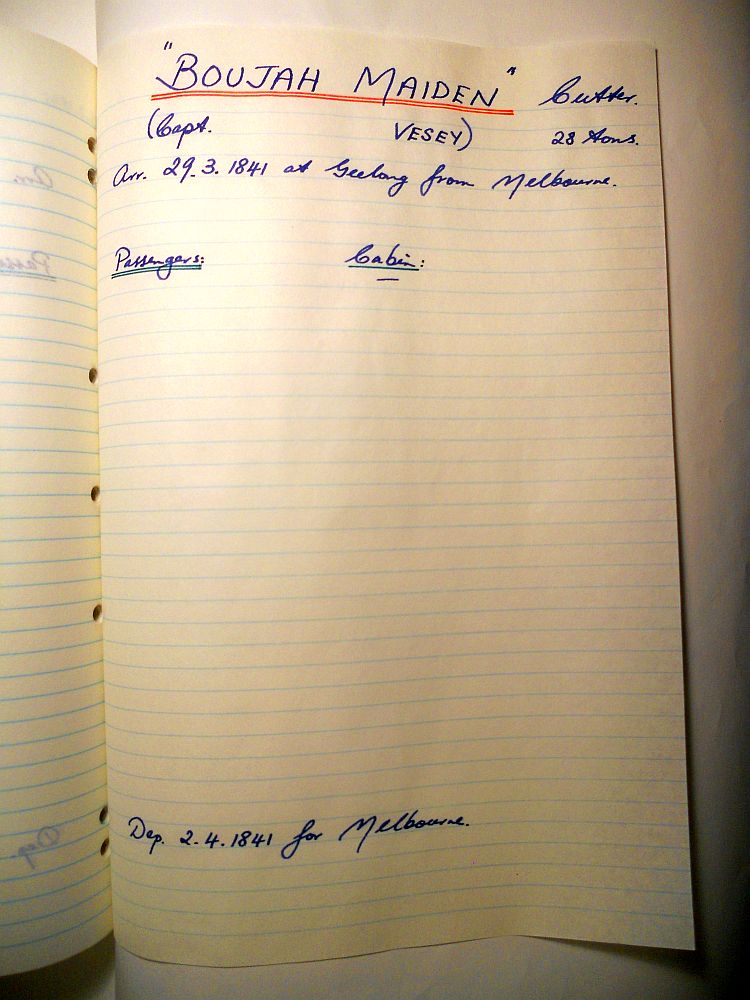 "BOUJAH MAIDEN" Cutter.
(Capt. VESEY) 28 tons.
Arr. 29.3.1841 at Geelong from Melbourne.
Passengers: Cabin:
—
Dep. 2.4.1841 for Melbourne.